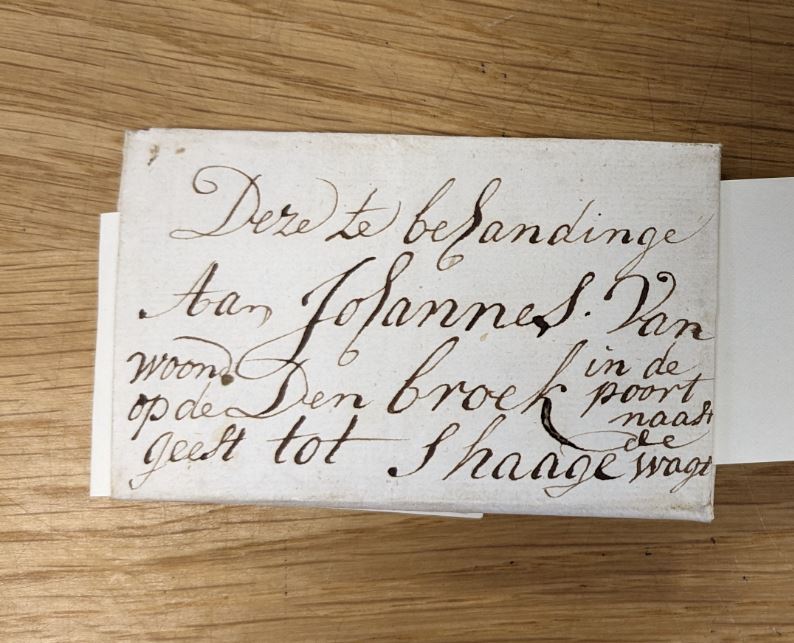 Deze te behandinge
Aan Johannes. Van
Den broek
woond
op de
geest tot Shaage
in de
poort
naast
de
wagt